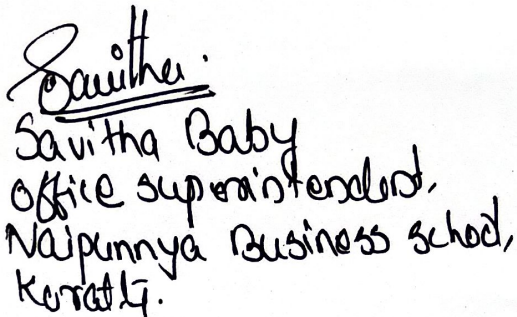 Savitha.
Savitha Baby
Office superintendent,
Naipunnya Business School,
Koratty.